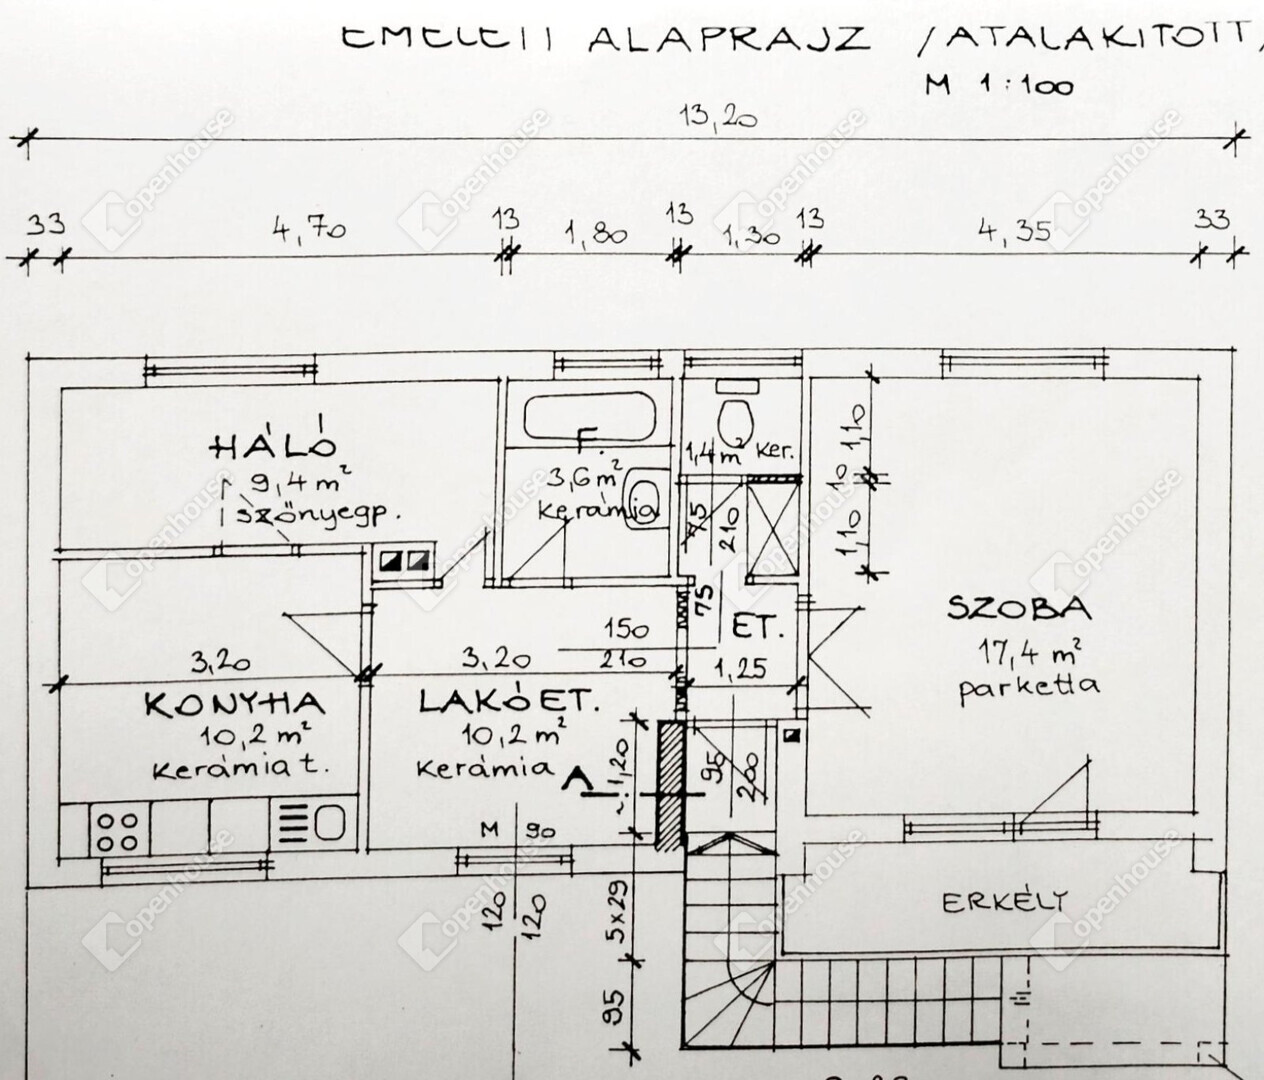 EMELETI ALAPRAJZ /ÁTALAKÍTOTT/
M 1:100
13,20
33 4,70 13 1,80 13 1,30 13 4,35 33
HÁLÓ
9,4 m²
szőnyegp.
F.
3,6 m²
kerámia
1,4 m² ker.
75
210
1,10
10
1,10
SZOBA
17,4 m²
parketta
75
ET.
1,25
150
210
3,20
KONYHA
10,2 m²
kerámia t.
3,20
LAKÓET.
10,2 m²
kerámia
A
1,20
95
200
M 90
120
120
5x29
95
ERKÉLY
openhouse